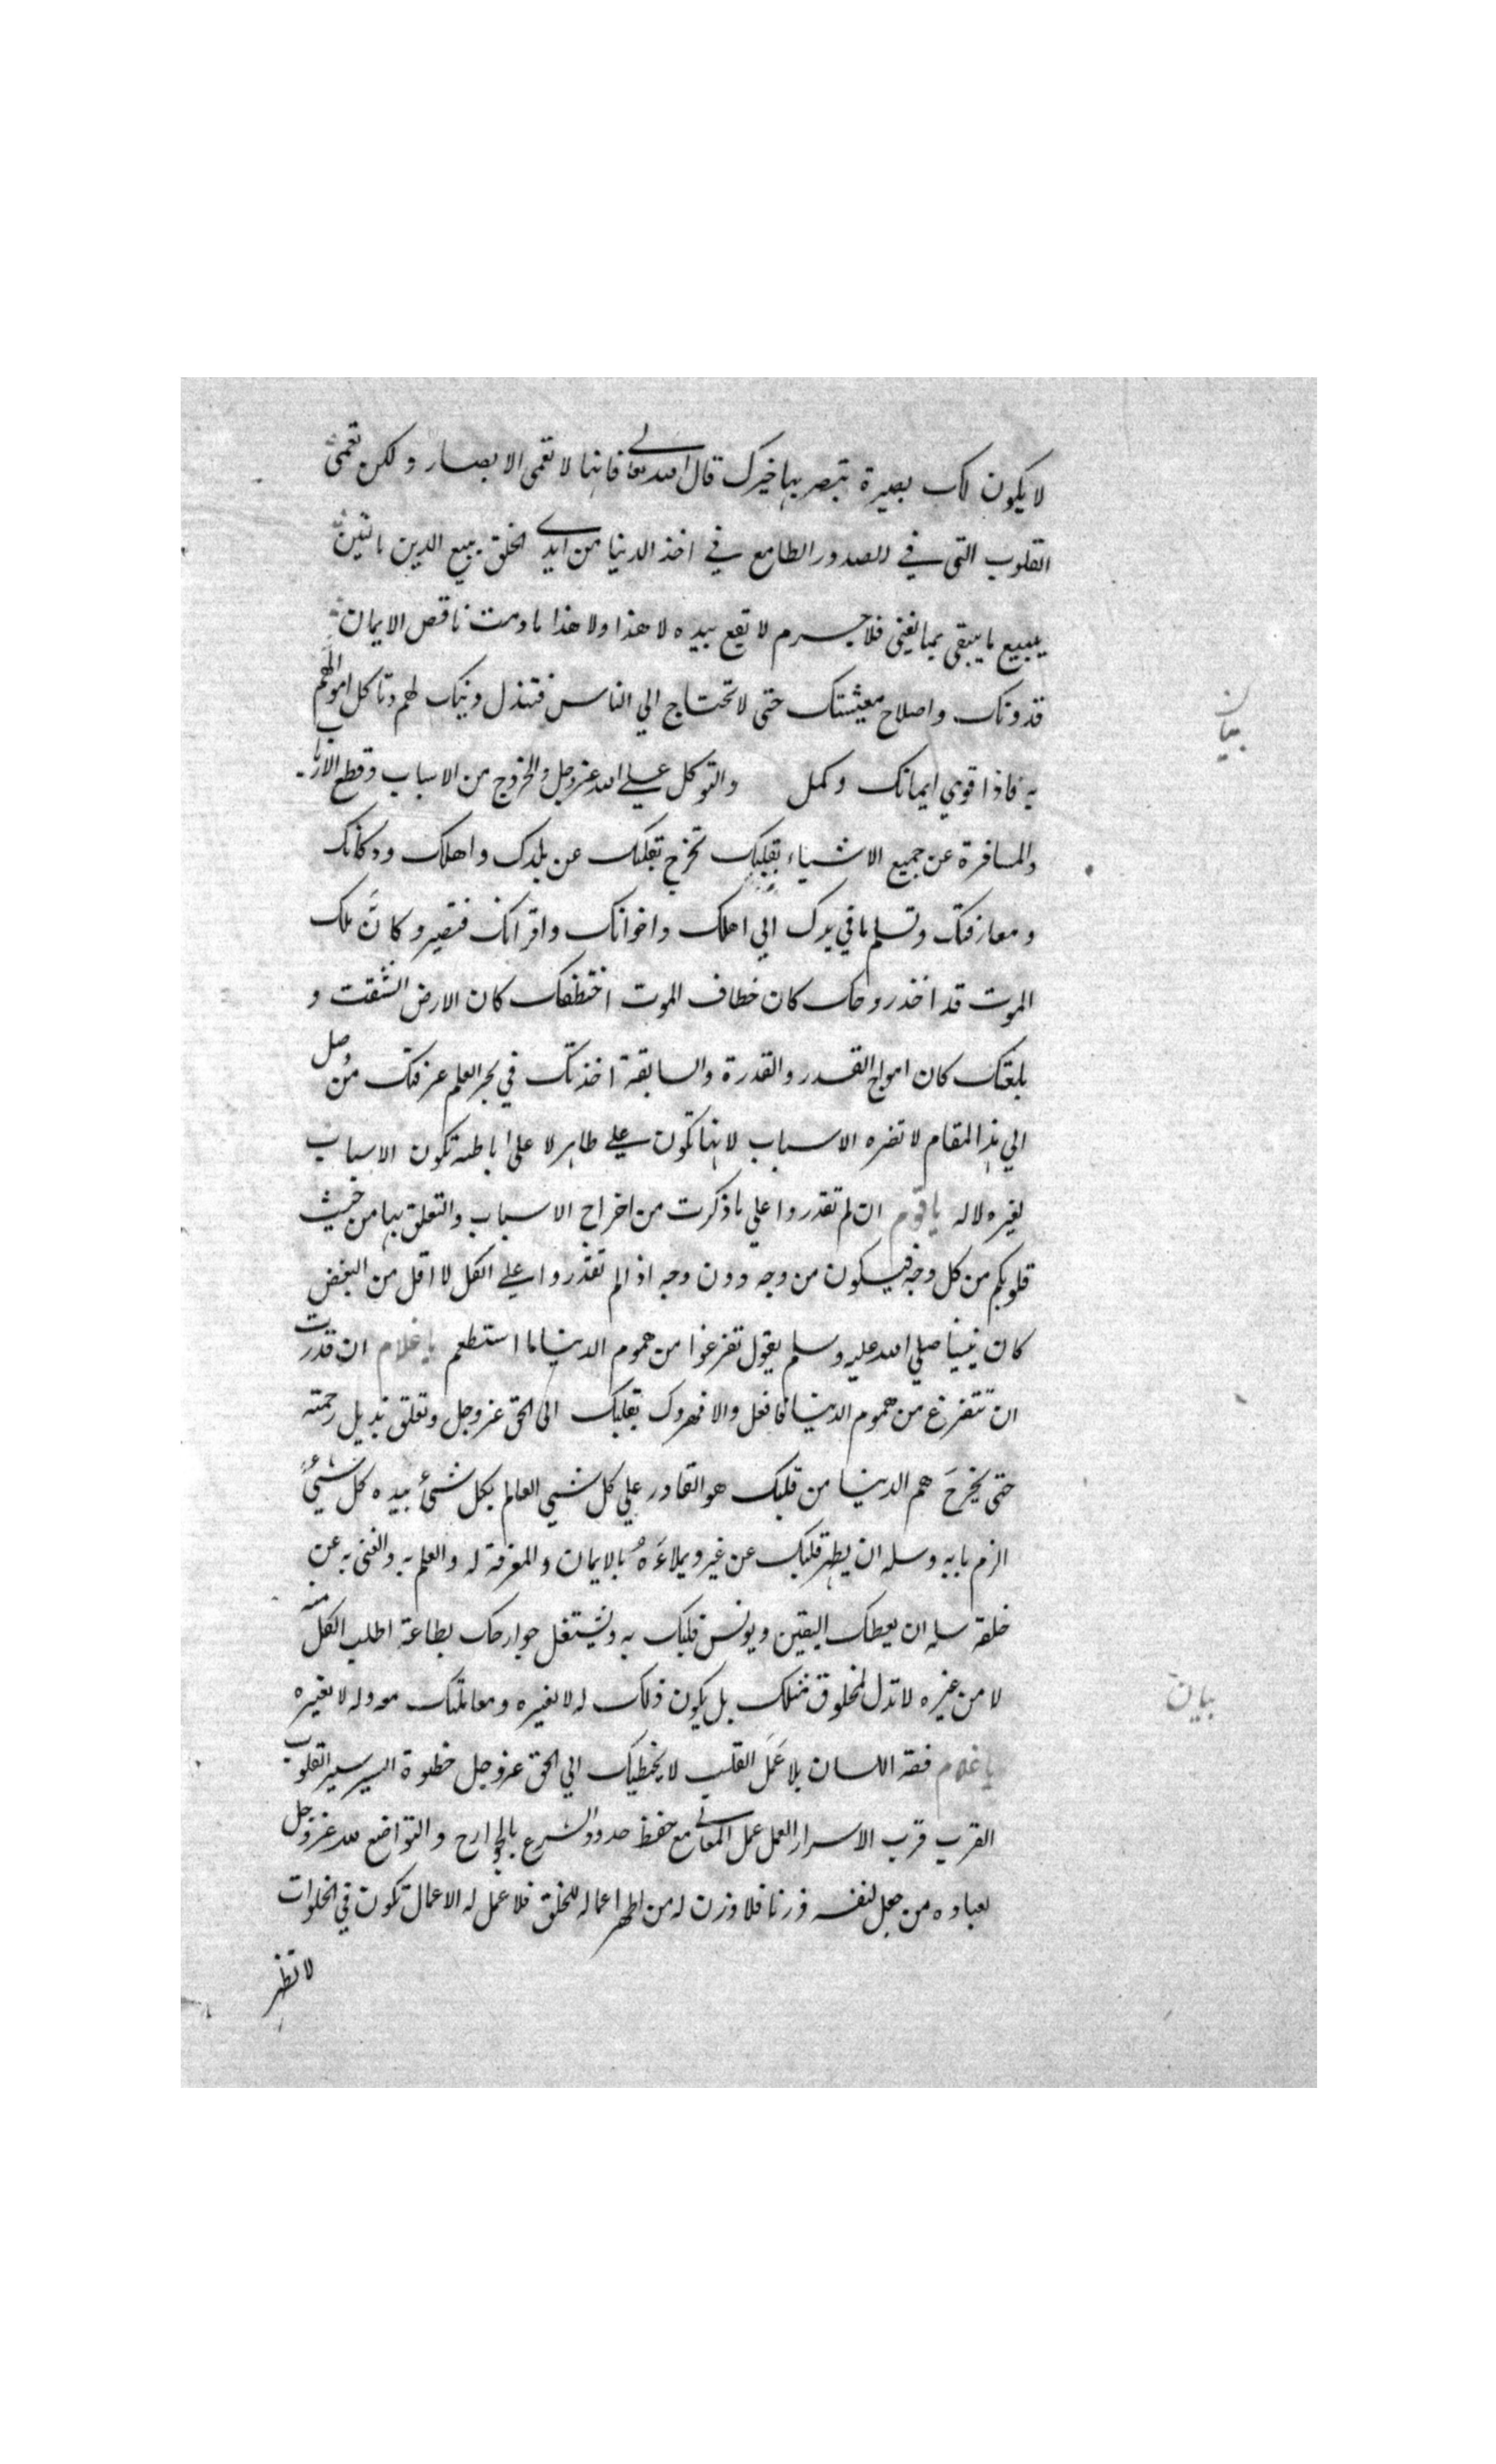 لا يكون لك بصيرة تبصر بها خيرك قال الله تعالى فانها لا تعمى الابصار ولكن تعمى
القلوب التى في الصدور الطامع في اخذ الدنيا من ايدي الخلق يبيع الدين بالتين
يبيع ما يبقى بما يفنى فلا جرم لا يقع بيده لا هذا ولا هذا مادمت ناقص الايمان
بيان
قدونك واصلاح معيشتك حتى لا تحتاج الي الناس فتبذل دينك لهم وتاكل اموالهم
به فاذا قوي ايمانك وكمل والتوكل علي الله عزوجل والخروج من الاسباب وقطع الارباب
والمسافرة عن جميع الاشياء بقلبك تخرج بقلبك عن بلدك واهلك ودكانك
ومعارفك وتسلم ما في يدك الي اهلك واخوانك واقرانك فتصير وكانَّ ملك
الموت قد اخذ روحك كان خطاف الموت اختطفك كان الارض انشقت و
بلعتك كان امواج القدر والقدرة والسابقة اخذتك في بحر العلم غرقتك من وصل
الي هذا المقام لا تضره الاسباب لانها تكون علي ظاهر لا على باطنه تكون الاسباب
لغيره لا له ياقوم ان لم تقدروا علي ما ذكرت من اخراج الاسباب والتعلق بها من حيث
قلوبكم من كل وجه فيكون من وجه دون وجه اذا لم تقدروا علي الكل لا اقل من البعض
كان نبينا صلي الله عليه وسلم يقول تفرغوا من هموم الدنيا ما استطعتم ياغلام ان قدرت
ان تتفرغ من هموم الدنيا فافعل والا فهرول بقلبك الى الحق عزوجل وتعلق بذيل رحمته
حتى يخرجَ هم الدنيا من قلبك هو القادر علي كل شيي العالم بكل شئ بيده كل شيئ
الزم بابه وسله ان يطهر قلبك عن غيره ويملاءَهُ بالايمان والمعرفة له والعلم به والغنى به عن
خلقه سله ان يعطك اليقين ويونس قلبك به ويشتغل جوارحك بطاعته اطلب الكل منه
بيان
لا من غيره لا تذل لمخلوق مثلك بل يكون ذلك له لا لغيره ومعاملتك معه وله لا لغيره
ياغلام فقه اللسان بلا عَمَل القلب لا يخطيك الي الحق عزوجل خطوة السير سير القلوب
القرب قرب الاسرار العمل عمل المعاني مع حفظ حدود الشرع بالجوارح والتواضع لله عزوجل
لعباده من جعل لنفسه وزنا فلا وزن له من اظهر اعماله للخلق فلا عمل له الاعمال تكون في الخلوات
لا تظهر